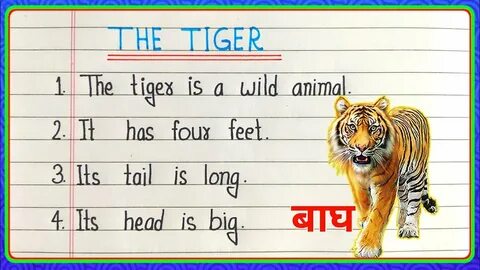 THE TIGER
1. The tiger is a wild animal.
2. It has four feet.
3. Its tail is long.
4. Its head is big.
बाघ